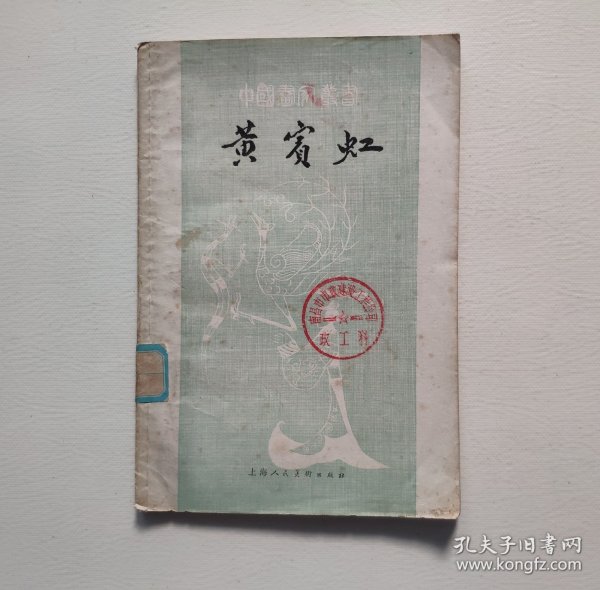 中國畫家叢書
黄賓虹
政工科
上海人民美術出版社
孔夫子旧書网
www.kongfz.com